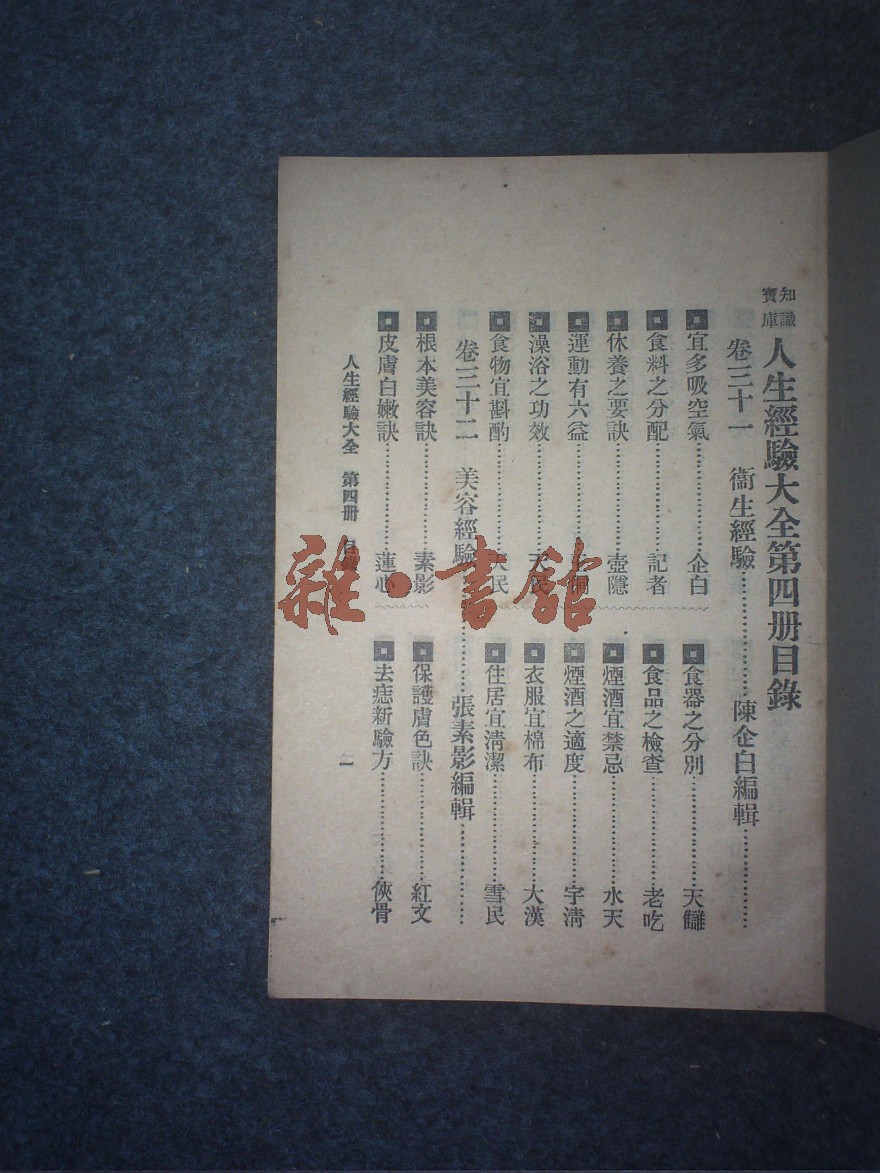 知識寶庫 人生經驗大全第四册目錄
卷三十一 衞生經驗 陳企白編輯
宜多吸空氣 企白
食器之分別 天讎
食料之分配 記者
食品之檢查 老吃
休養之要訣 壺隱
煙酒宜禁忌 水天
運動有六益
煙酒之適度 宇淸
澡浴之功效 天民
衣服宜棉布 大漢
食物宜斟酌 天民
住居宜淸潔 雪民
卷三十二 美容經驗 張素影編輯
根本美容訣 素影
保護膚色訣 紅文
皮膚白嫩訣 蓮心
去痣新驗方 俠骨
人生經驗大全 第四册 目錄 一
雜·書館